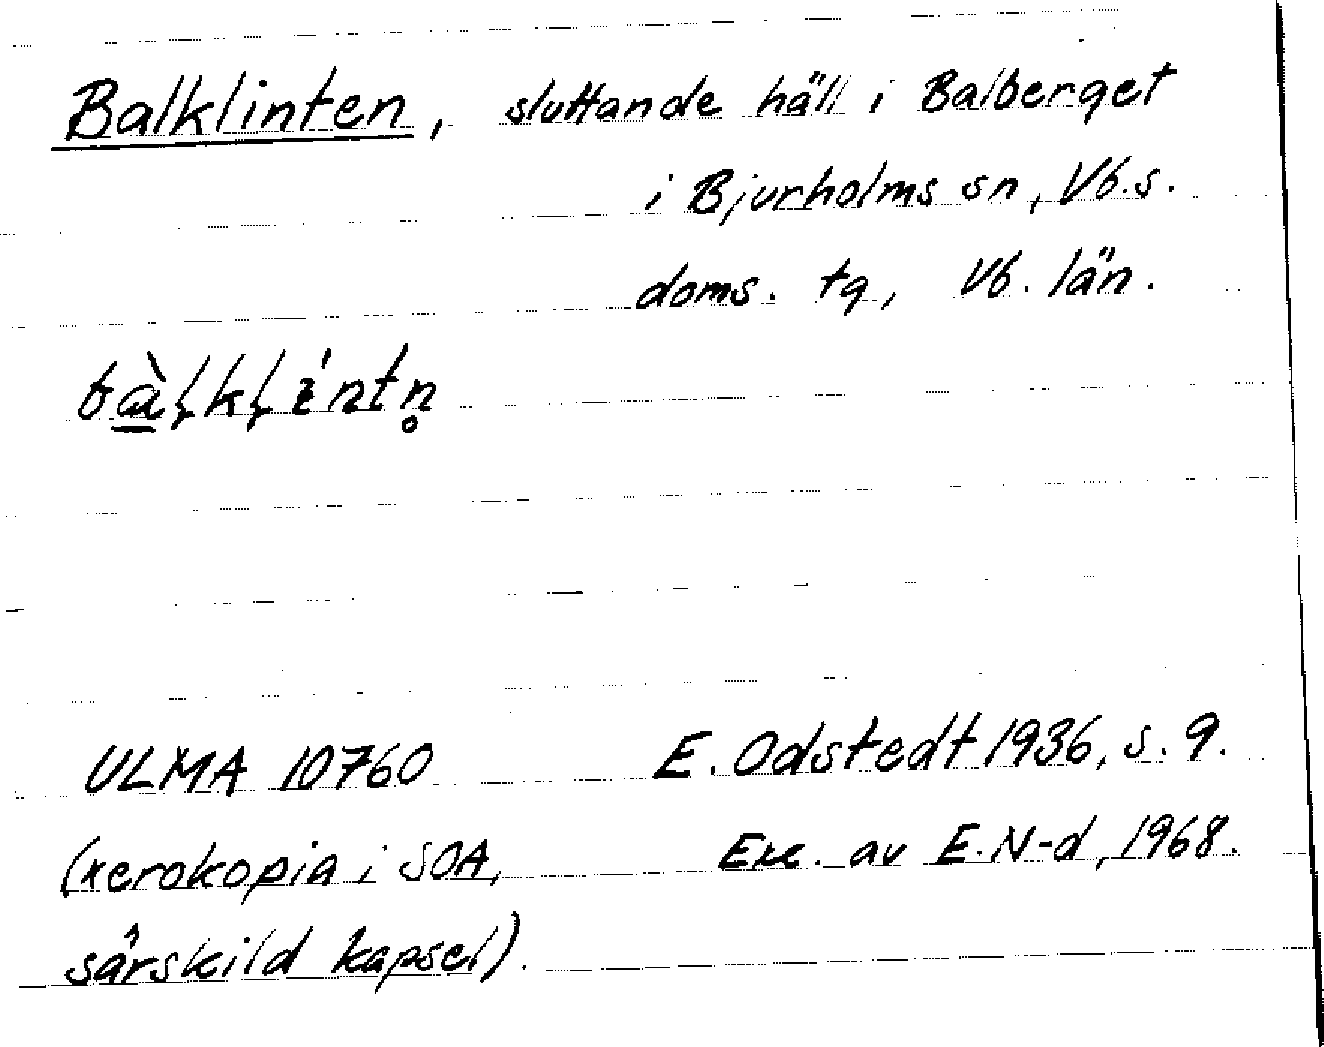 Balklinten, sluttande häll i Balberget
i Bjurholms sn, Vb.s.
doms. tg, Vb. län.
ULMA 10760 E. Odstedt 1936, s. 9.
(xerokopia i SOA, Exc. av E.N-d, 1968.
särskild kapsel).